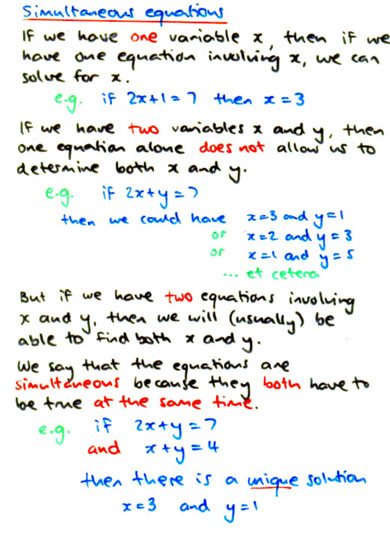 Simultaneous equations
If we have one variable x, then if we
have one equation involving x, we can
solve for x.
e.g. if 2x+1=7 then x=3
If we have two variables x and y, then
one equation alone does not allow us to
determine both x and y.
e.g. if 2x+y=7
then we could have x=3 and y=1
or x=2 and y=3
or x=1 and y=5
... et cetera
But if we have two equations involving
x and y, then we will (usually) be
able to find both x and y.
We say that the equations are
simultaneous because they both have to
be true at the same time.
e.g. if 2x+y=7
and x+y=4
then there is a unique solution
x=3 and y=1